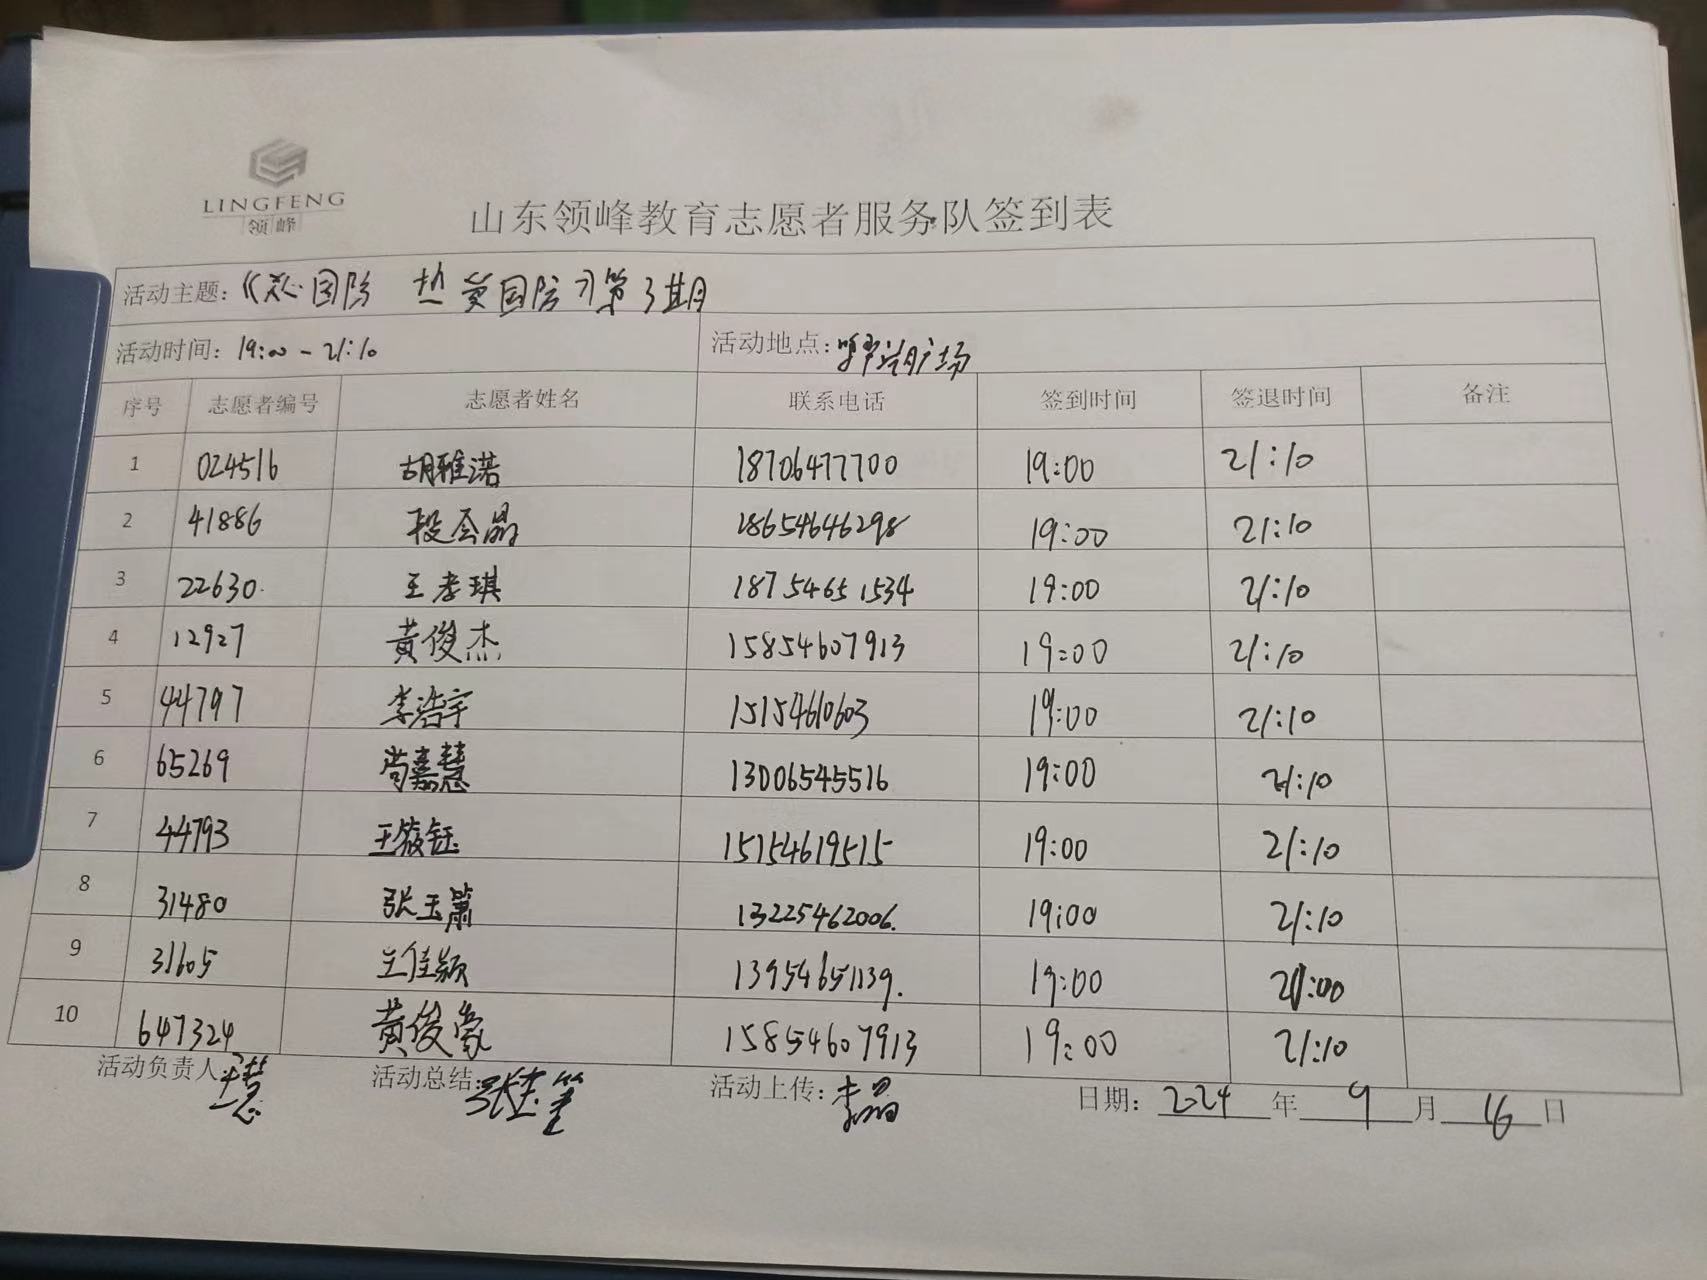 LINGFENG
领峰
山东领峰教育志愿者服务队签到表
活动主题：《 国防 热爱国防》第3期
活动时间：19:00-21:10 活动地点： 广场
序号 志愿者编号 志愿者姓名 联系电话 签到时间 签退时间 备注
1 024516 胡雅诺 18706477700 19:00 21:10
2 41886 段会晶 18654646298 19:00 21:10
3 22630 王孝琪 18754651534 19:00 21:10
4 12927 黄俊杰 15854607913 19:00 21:10
5 44797 李浩宇 15154610603 19:00 21:10
6 65269 尚嘉慧 13006545516 19:00 21:10
7 44793 王筱钰 15154619515 19:00 21:10
8 31480 张玉箫 13225462006. 19:00 21:10
9 31605 王佳颖 13954651139. 19:00 21:00
10 647324 黄俊豪 15854607913 19:00 21:10
活动负责人： 活动总结： 活动上传：李晶 日期：2024年9月16日